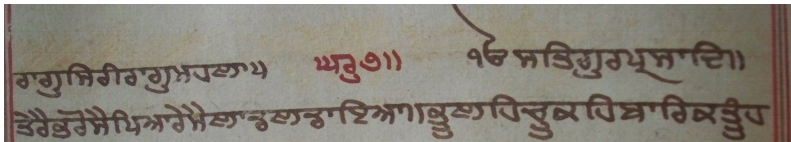 ਰਾਗੁਸਿਰੀਰਾਗੁਮਹਲਾ੫ ਘਰੁ੭॥ ੴਸਤਿਗੁਰਪ੍ਰਸਾਦਿ॥
ਤੇਰੈਭਰੋਸੈਪਿਆਰੇਮੈਲਾਡਲਡਾਇਆ॥ਭੂਲਹਿਚੂਕਹਿਬਾਰਿਕਤੂੰਹ